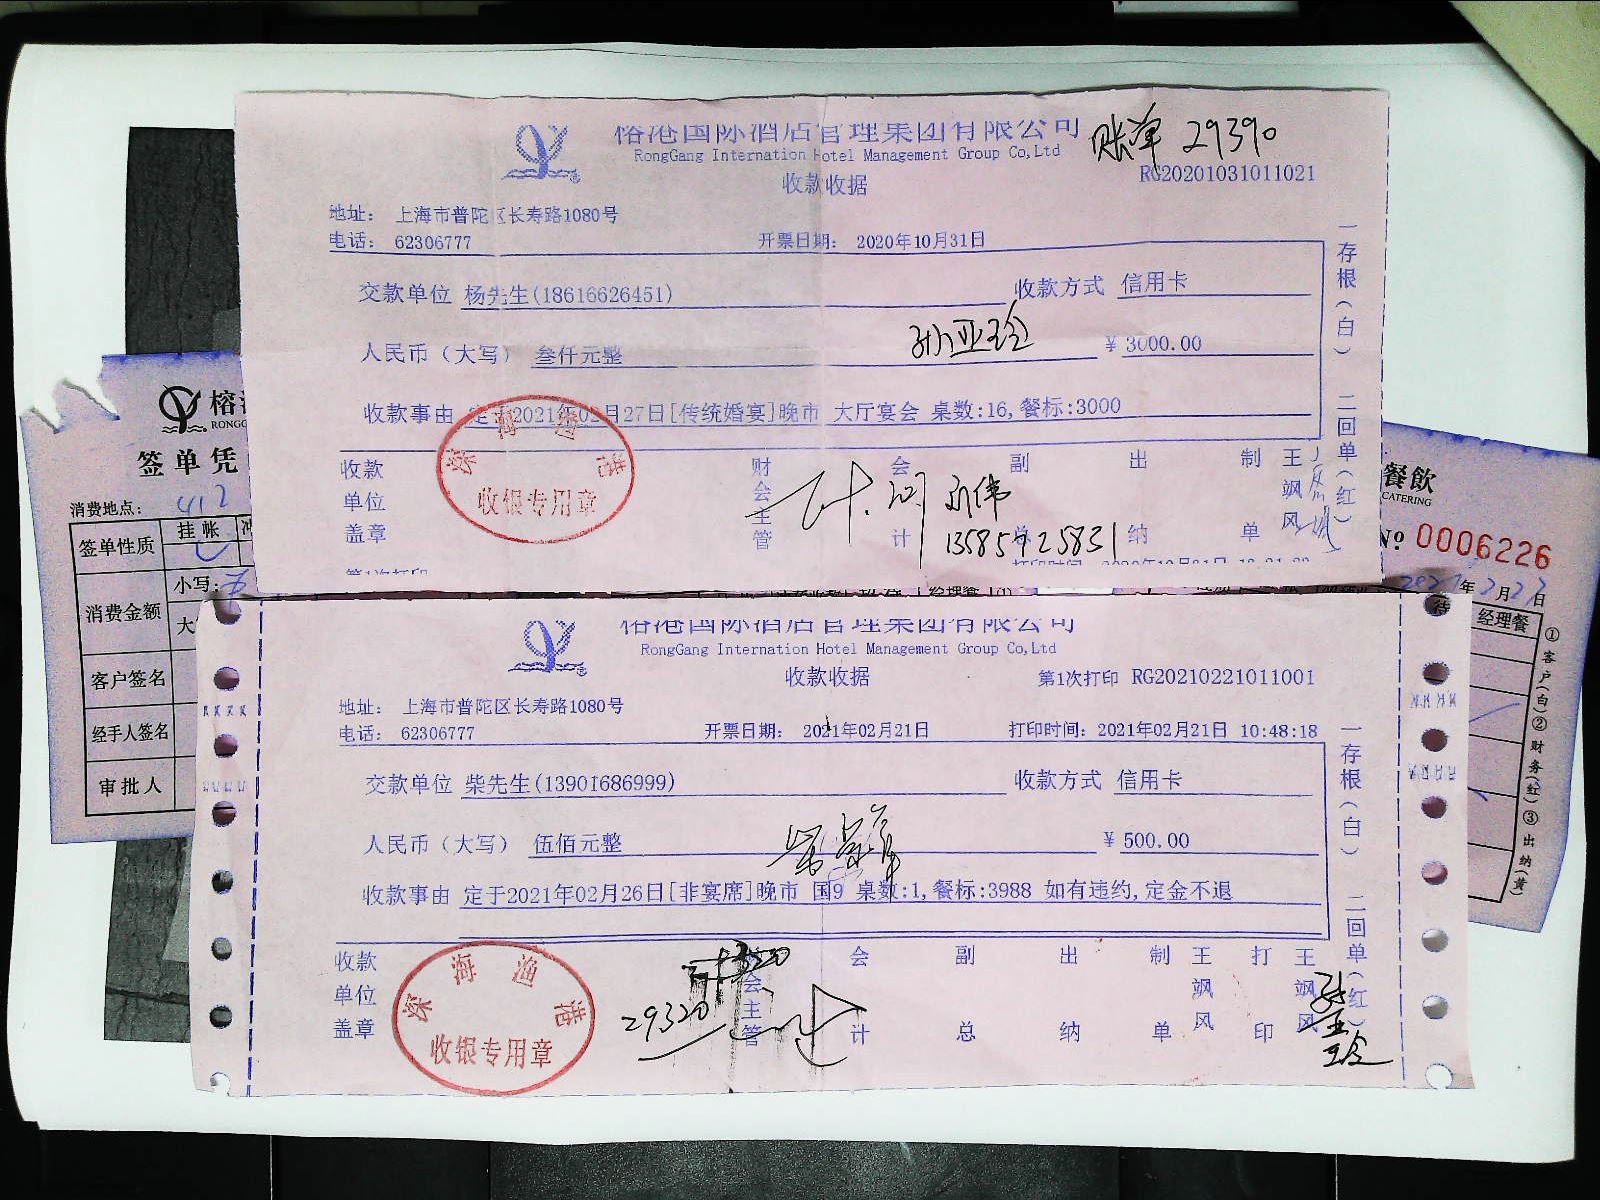 榕港国际酒店管理集团有限公司 账单 29390
RongGang Internation Hotel Management Group Co,Ltd
收款收据 RG20201031011021
地址： 上海市普陀区长寿路1080号
电话： 62306777 开票日期： 2020年10月31日
交款单位 杨先生(18616626451) 收款方式 信用卡
人民币（大写） 叁仟元整 孙亚玲 ￥ 3000.00
收款事由 定于2021年02月27日[传统婚宴]晚市 大厅宴会 桌数:16,餐标:3000
收款单位盖章 财会主管 会计 副总 出纳 制单 王飒风
13585925831
深海渔港
收银专用章
一存根（白） 二回单（红）
榕港国际酒店管理集团有限公司
RongGang Internation Hotel Management Group Co,Ltd
收款收据 第1次打印 RG20210221011001
地址： 上海市普陀区长寿路1080号
电话： 62306777 开票日期： 2021年02月21日 打印时间：2021年02月21日 10:48:18
交款单位 柴先生(13901686999) 收款方式 信用卡
人民币（大写） 伍佰元整 ￥ 500.00
收款事由 定于2021年02月26日[非宴席]晚市 国9 桌数:1,餐标:3988 如有违约,定金不退
收款单位盖章 会主管 会计 副总 出纳 制单 王飒风 打印 王飒风
29320
孙亚玲
深海渔港
收银专用章
一存根（白） 二回单（红）
榕
RONGG
签单凭
消费地点： 412
签单性质 挂帐
消费金额 小写：
大
客户签名
经手人签名
审批人
餐飲
CATERING
№ 0006226
2021年2月27日
待 经理餐
①客户(白)②财务(红)③出纳(黄)